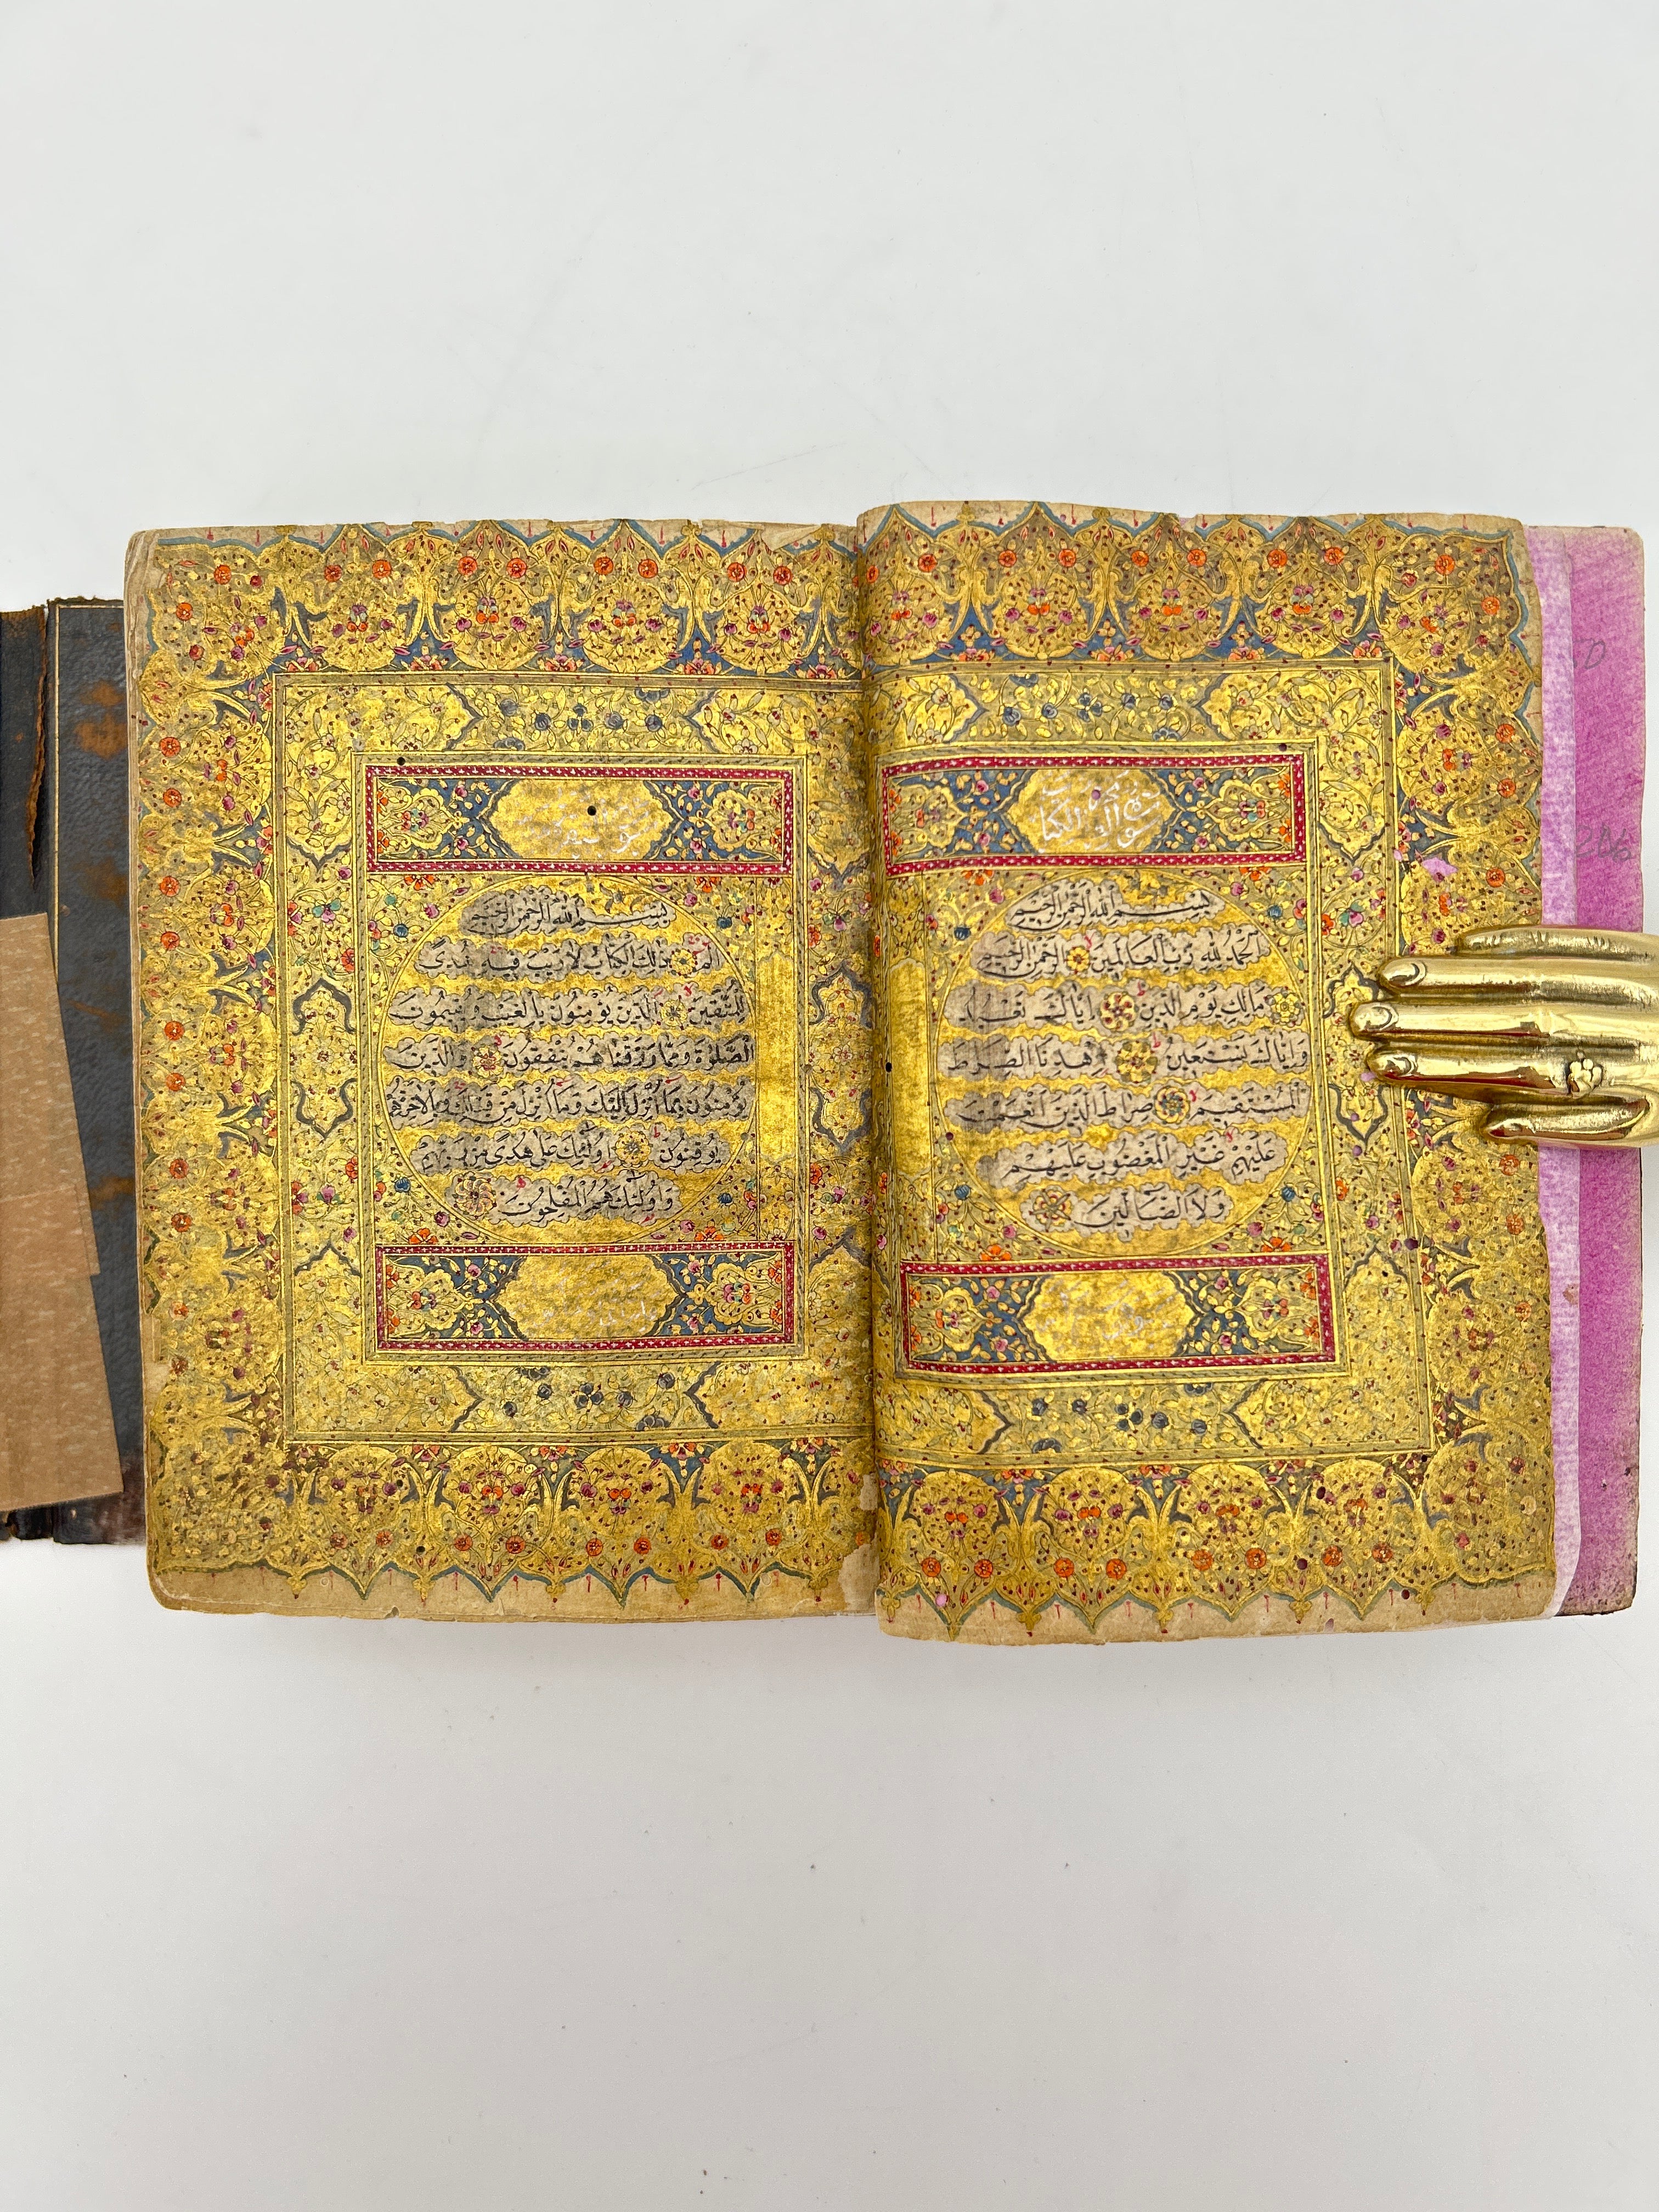 سورة فاتحة الكتاب
بسم الله الرحمن الرحيم
الحمد لله رب العالمين الرحمن الرحيم
مالك يوم الدين اياك نعبد
واياك نستعين اهدنا الصراط
المستقيم صراط الذين انعمت
عليهم غير المغضوب عليهم
ولا الضالين
سورة
بسم الله الرحمن الرحيم
الم ذلك الكتاب لا ريب فيه هدى
للمتقين الذين يؤمنون بالغيب ويقيمون
الصلوة ومما رزقناهم ينفقون والذين
يؤمنون بما انزل اليك وما انزل من قبلك وبالاخرة هم
يوقنون اولئك على هدى من ربهم
واولئك هم المفلحون